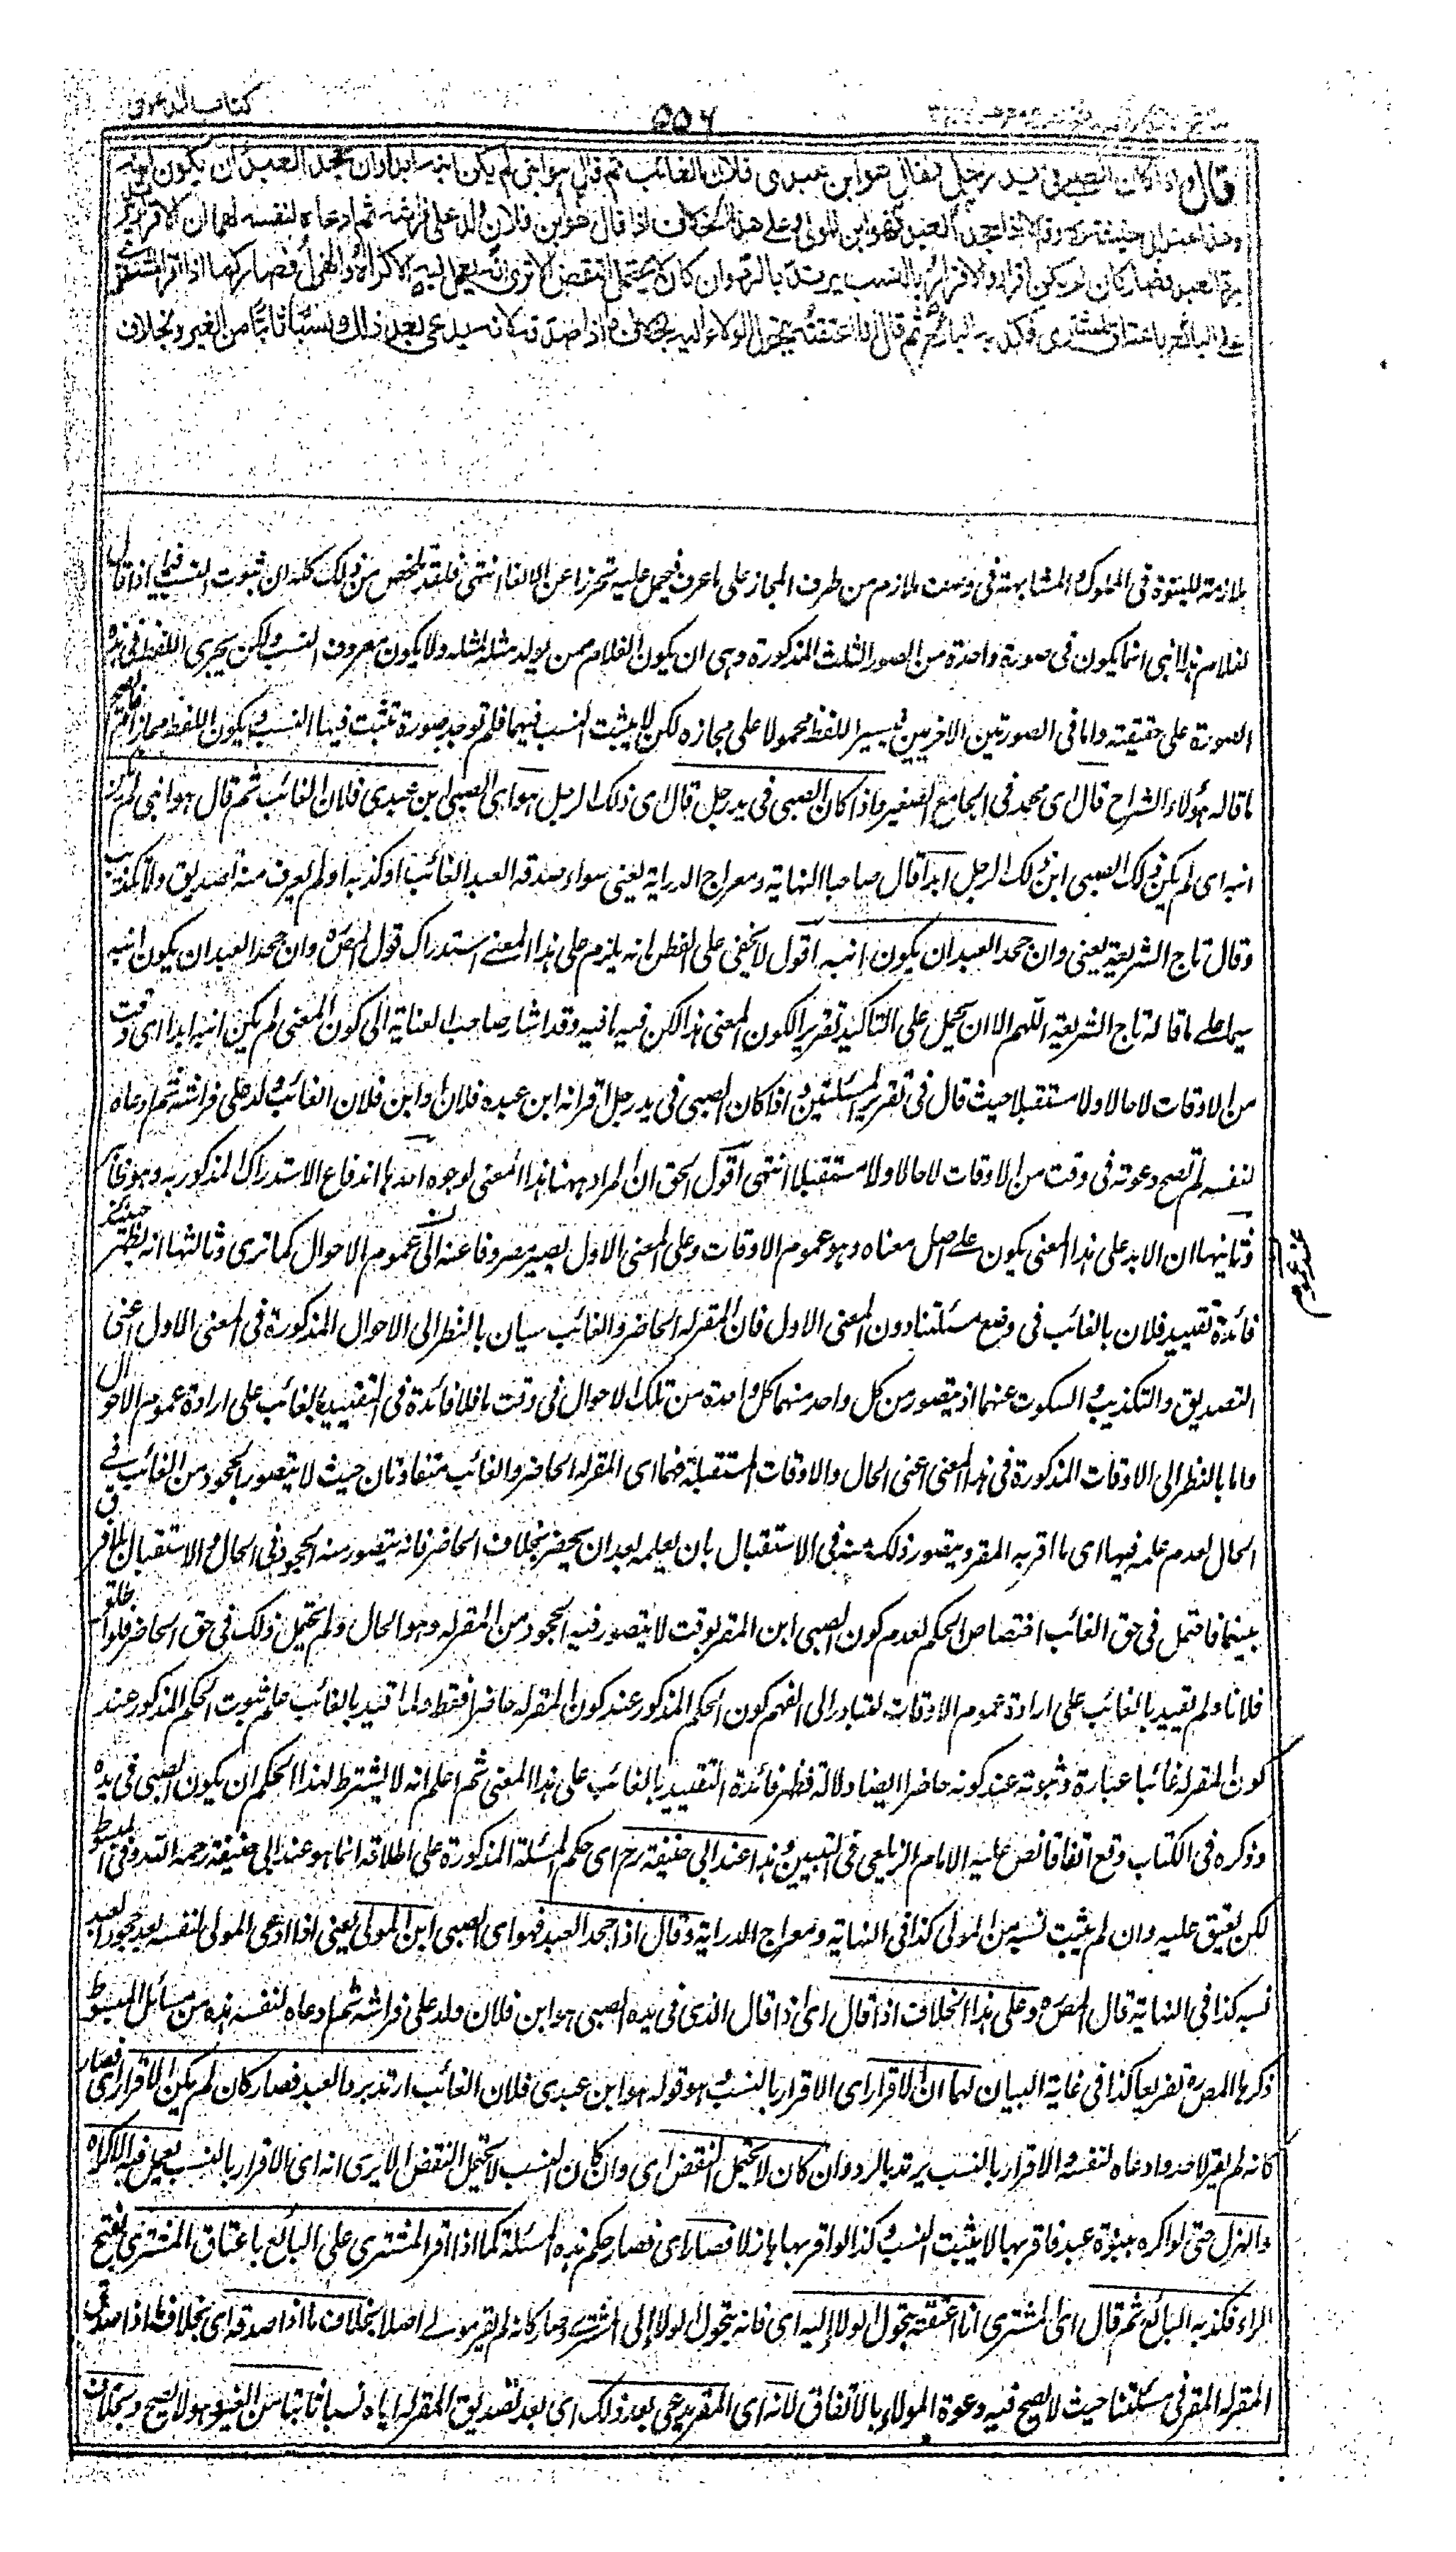 كتاب الدعوى
٥٥٦
قال واذا كان الصبي في يد رجل فقال هو ابن عبدي فلان الغائب ثم قال هو ابني لم يكن ابنه ابدا وان جحد العبد ان يكون ابنه
وهذا عند ابي حنيفة رح وقالا اذا جحد العبد فهو ابن المولى وعلى هذا الخلاف اذا قال هو ابن فلان ولد على فراشه ثم ادعاه لنفسه لهما ان الاقرار
يرتد برد العبد فصار كان لم يكن اقرار والاقرار بالنسب يرتد بالرد وان كان لا يحتمل النقض الا ترى انه يعمل فيه الاكراه والهزل فصار كما اذا اقر المشتري
على البائع باعتاق المشترى فكذبه البائع ثم قال انا اعتقته يتحول الولاء اليه بخلاف ما اذا صدقه لانه يدعي بعد ذلك نسبا ثابتا من الغير وبخلاف
ملازمة للبنوة في المملوك والمشابهة في وصف ملازم من طرف المجاز على ما عرف فيحمل عليه تحرزا عن الالغا انتهى فلقد تلخص من ذلك كله ان ثبوت النسب فيما اذا قال
لغلام هذا ابني انما يكون في صورة واحدة من الصور الثلث المذكورة وهي ان يكون الغلام ممن يولد مثله لمثله ولا يكون معروف النسب ولكن يجرى اللفظ في هذه
الصورة على حقيقته واما في الصورتين الاخريين فيصير اللفظ محمولا على مجازه لكن لا يثبت النسب فيهما فلم توجد صورة تثبت فيها النسب ويكون اللفظ مجازا فلم يصح
ما قاله هؤلاء الشراح قال اى محمد في الجامع الصغير واذا كان الصبي في يد رجل قال اى ذلك الرجل هو اى الصبي ابن عبدي فلان الغائب ثم قال هو ابني لم يكن
ابنه اى لم يكن ذلك الصبي ابن ذلك الرجل ابدا قال صاحبا النهاية ومعراج الدراية يعني سواء صدقه العبد الغائب او كذبه او لم يعرف منه تصديق ولا تكذيب
وقال تاج الشريعة يعني وان جحد العبد ان يكون ابنه اقول لا يخفى على الفطن انه يلزم على هذا المعنى استدراك قول المص ره وان جحد العبد ان يكون ابنه
سيما على ما قاله تاج الشريعة اللهم الا ان يحمل على التاكيد تقريرا لكون المعنى هذا لكن فيه ما فيه وقد اشار صاحب العناية الى كون المعنى لم يكن ابنه ابدا اى في وقت
من الاوقات لا حالا ولا مستقبلا حيث قال في تقرير المسئلتين واذا كان الصبي في يد رجل اقر انه ابن عبده فلان او ابن فلان الغائب ولد على فراشه ثم ادعاه
لنفسه لم تصح دعوته في وقت من الاوقات لا حالا ولا مستقبلا انتهى اقول الحق ان المراد ههنا هذا المعنى لوجوه احدها اندفاع الاستدراك المذكور به وهو ظاهر
وثانيها ان الابد على هذا المعنى يكون على اصل معناه وهو عموم الاوقات وعلى المعنى الاول يصير مصروفا عنه الى عموم الاحوال كما ترى وثالثها انه يظهر حينئذ
فائدة تقييد فلان بالغائب في وضع مسئلتنا دون المعنى الاول فان المقر له الحاضر والغائب سيان بالنظر الى الاحوال المذكورة في المعنى الاول اعنى
التصديق والتكذيب والسكوت عنهما اذ يتصور من كل واحد منهما كل واحدة من تلك الاحوال في وقت ما فلا فائدة في التقييد بالغائب على ارادة عموم الاحوال
واما بالنظر الى الاوقات المذكورة في هذا المعنى اعنى الحال والاوقات المستقبلة فهما اى المقر له الحاضر والغائب متفاوتان حيث لا يتصور الجحود من الغائب في
الحال لعدم علمه فيها اى ما اقر به المقر ويتصور ذلك منه في الاستقبال بان يعلمه بعد ان يحضر بخلاف الحاضر فانه يتصور منه الجحود في الحال والاستقبال بلا فرق
بينهما فاحتمل في حق الغائب اختصاص الحكم لعدم كون الصبي ابن المقر بوقت لا يتصور فيه الجحود من المقر له وهو الحال ولم يحتمل ذلك في حق الحاضر فلو اطلق
فلانا ولم يقيد بالغائب على ارادة عموم الاوقات لتبادر الى الفهم كون الحكم المذكور عند كون المقر له حاضرا فقط ولما قيد بالغائب علم ثبوت الحكم المذكور عند
كون المقر له غائبا عبارة وثبوته عند كونه حاضرا ايضا دلالة فظهر فائدة التقييد بالغائب على هذا المعنى ثم اعلم انه لا يشترط لهذا الحكم ان يكون الصبي في يده
وذكره في الكتاب وقع اتفاقا نص عليه الامام الزيلعي في التبيين وهذا عند ابي حنيفة رح اى حكم المسئلة المذكورة على اطلاقه انما هو عند ابي حنيفة رحمه الله وفي المبسوط
لكن يعتق عليه وان لم يثبت نسبه من المولى كذا في النهاية ومعراج الدراية وقالا اذا جحد العبد فهو اى الصبي ابن المولى يعني اذا ادعى المولى لنفسه بعد جحود العبد
نسبه كذا في النهاية قال المص ره وعلى هذا الخلاف اذا قال اى اذا قال الذى في يده الصبي هو ابن فلان ولد على فراشه ثم ادعاه لنفسه هذه من مسائل المبسوط
ذكرها المص ره تفريعا كذا في غاية البيان لهما ان الاقرار اى الاقرار بالنسب وهو قوله هو ابن عبدي فلان الغائب ارتد برد العبد فصار كان لم يكن الاقرار اى فصار
كانه لم يقر لاحد وادعاه لنفسه والاقرار بالنسب يرتد بالرد وان كان لا يحتمل النقض اى وان كان النسب لا يحتمل النقض الا يرى انه اى الاقرار بالنسب يعمل فيه الاكراه
والهزل حتى لو اكره ببنوة عبد فاقر بها لا يثبت النسب وكذا لو اقر بها هازلا فصار اى فصار حكم هذه المسئلة كما اذا اقر المشترى على البائع باعتاق المشترى بفتح
الراء فكذبه البائع ثم قال اى المشترى انا اعتقته يتحول الولاء اليه اى فانه يتحول الولاء الى المشترى وصار كانه لم يقر به اصلا بخلاف ما اذا صدقه اى بخلاف ما اذا صدق
المقر له المقر في مسئلتنا حيث لا يصح فيه دعوة المولى بالاتفاق لانه اى المقر يدعي بعد ذلك اى بعد تصديق المقر له اياه نسبا ثابتا من الغير وهو لا يصح وبخلاف